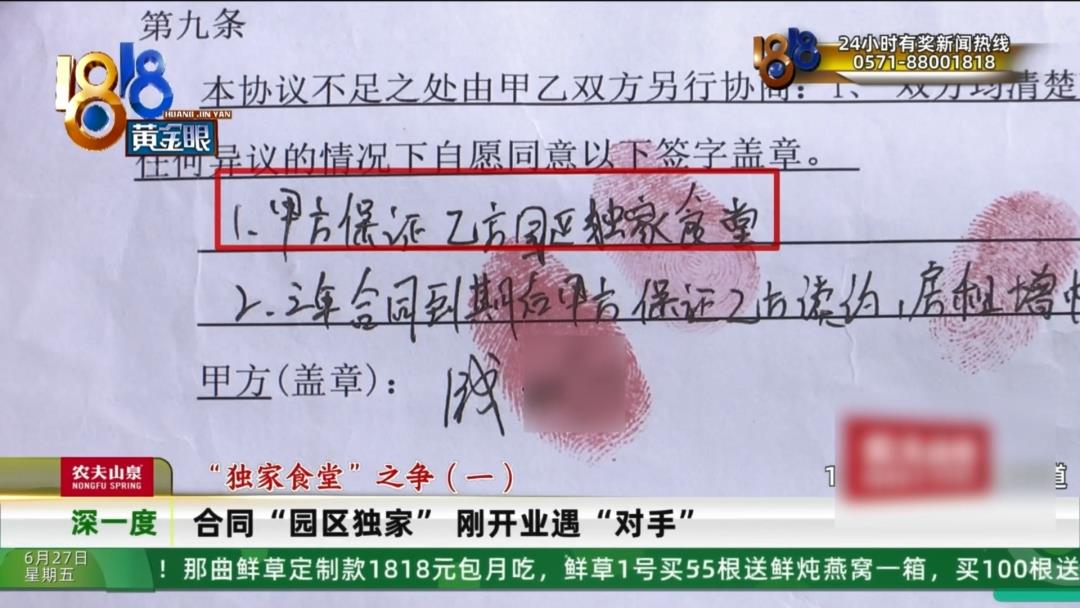 第九条
24小时有奖新闻热线
0571-88001818
1818
HUANG JIN YAN
黄金眼
本协议不足之处由甲乙双方另行协商：1、双方均清楚
任何异议的情况下自愿同意以下签字盖章。
1.甲方保证乙方园区独家食堂
2.三年合同到期后甲方保证乙方续约，房租增
甲方(盖章)：
农夫山泉
NONGFU SPRING
“独家食堂”之争（一）
深一度
合同“园区独家” 刚开业遇“对手”
6月27日
星期五
！那曲鲜草定制款1818元包月吃，鲜草1号买55根送鲜炖燕窝一箱，买100根送